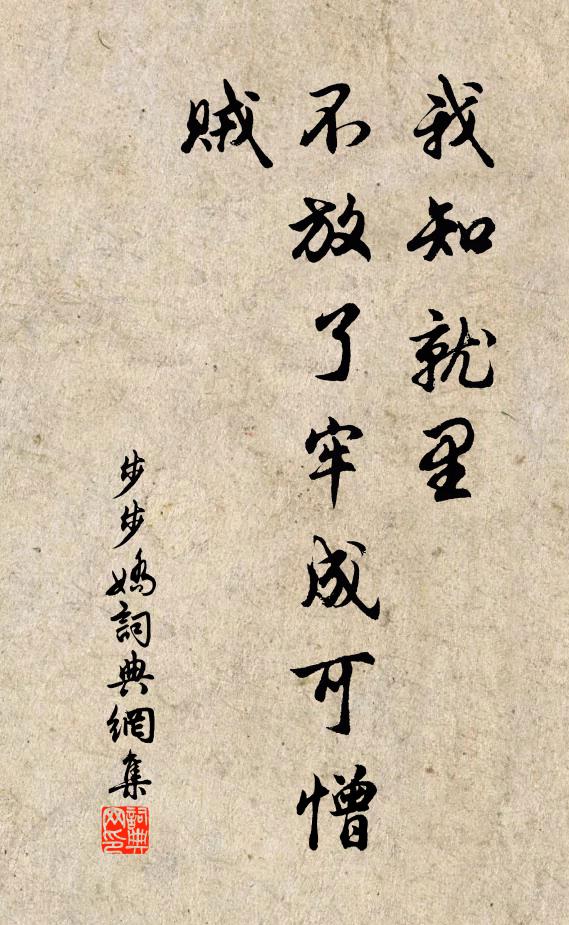 我知就里
不放了牢成可憎
贼
步步嬌詞典網集
詞典
网印